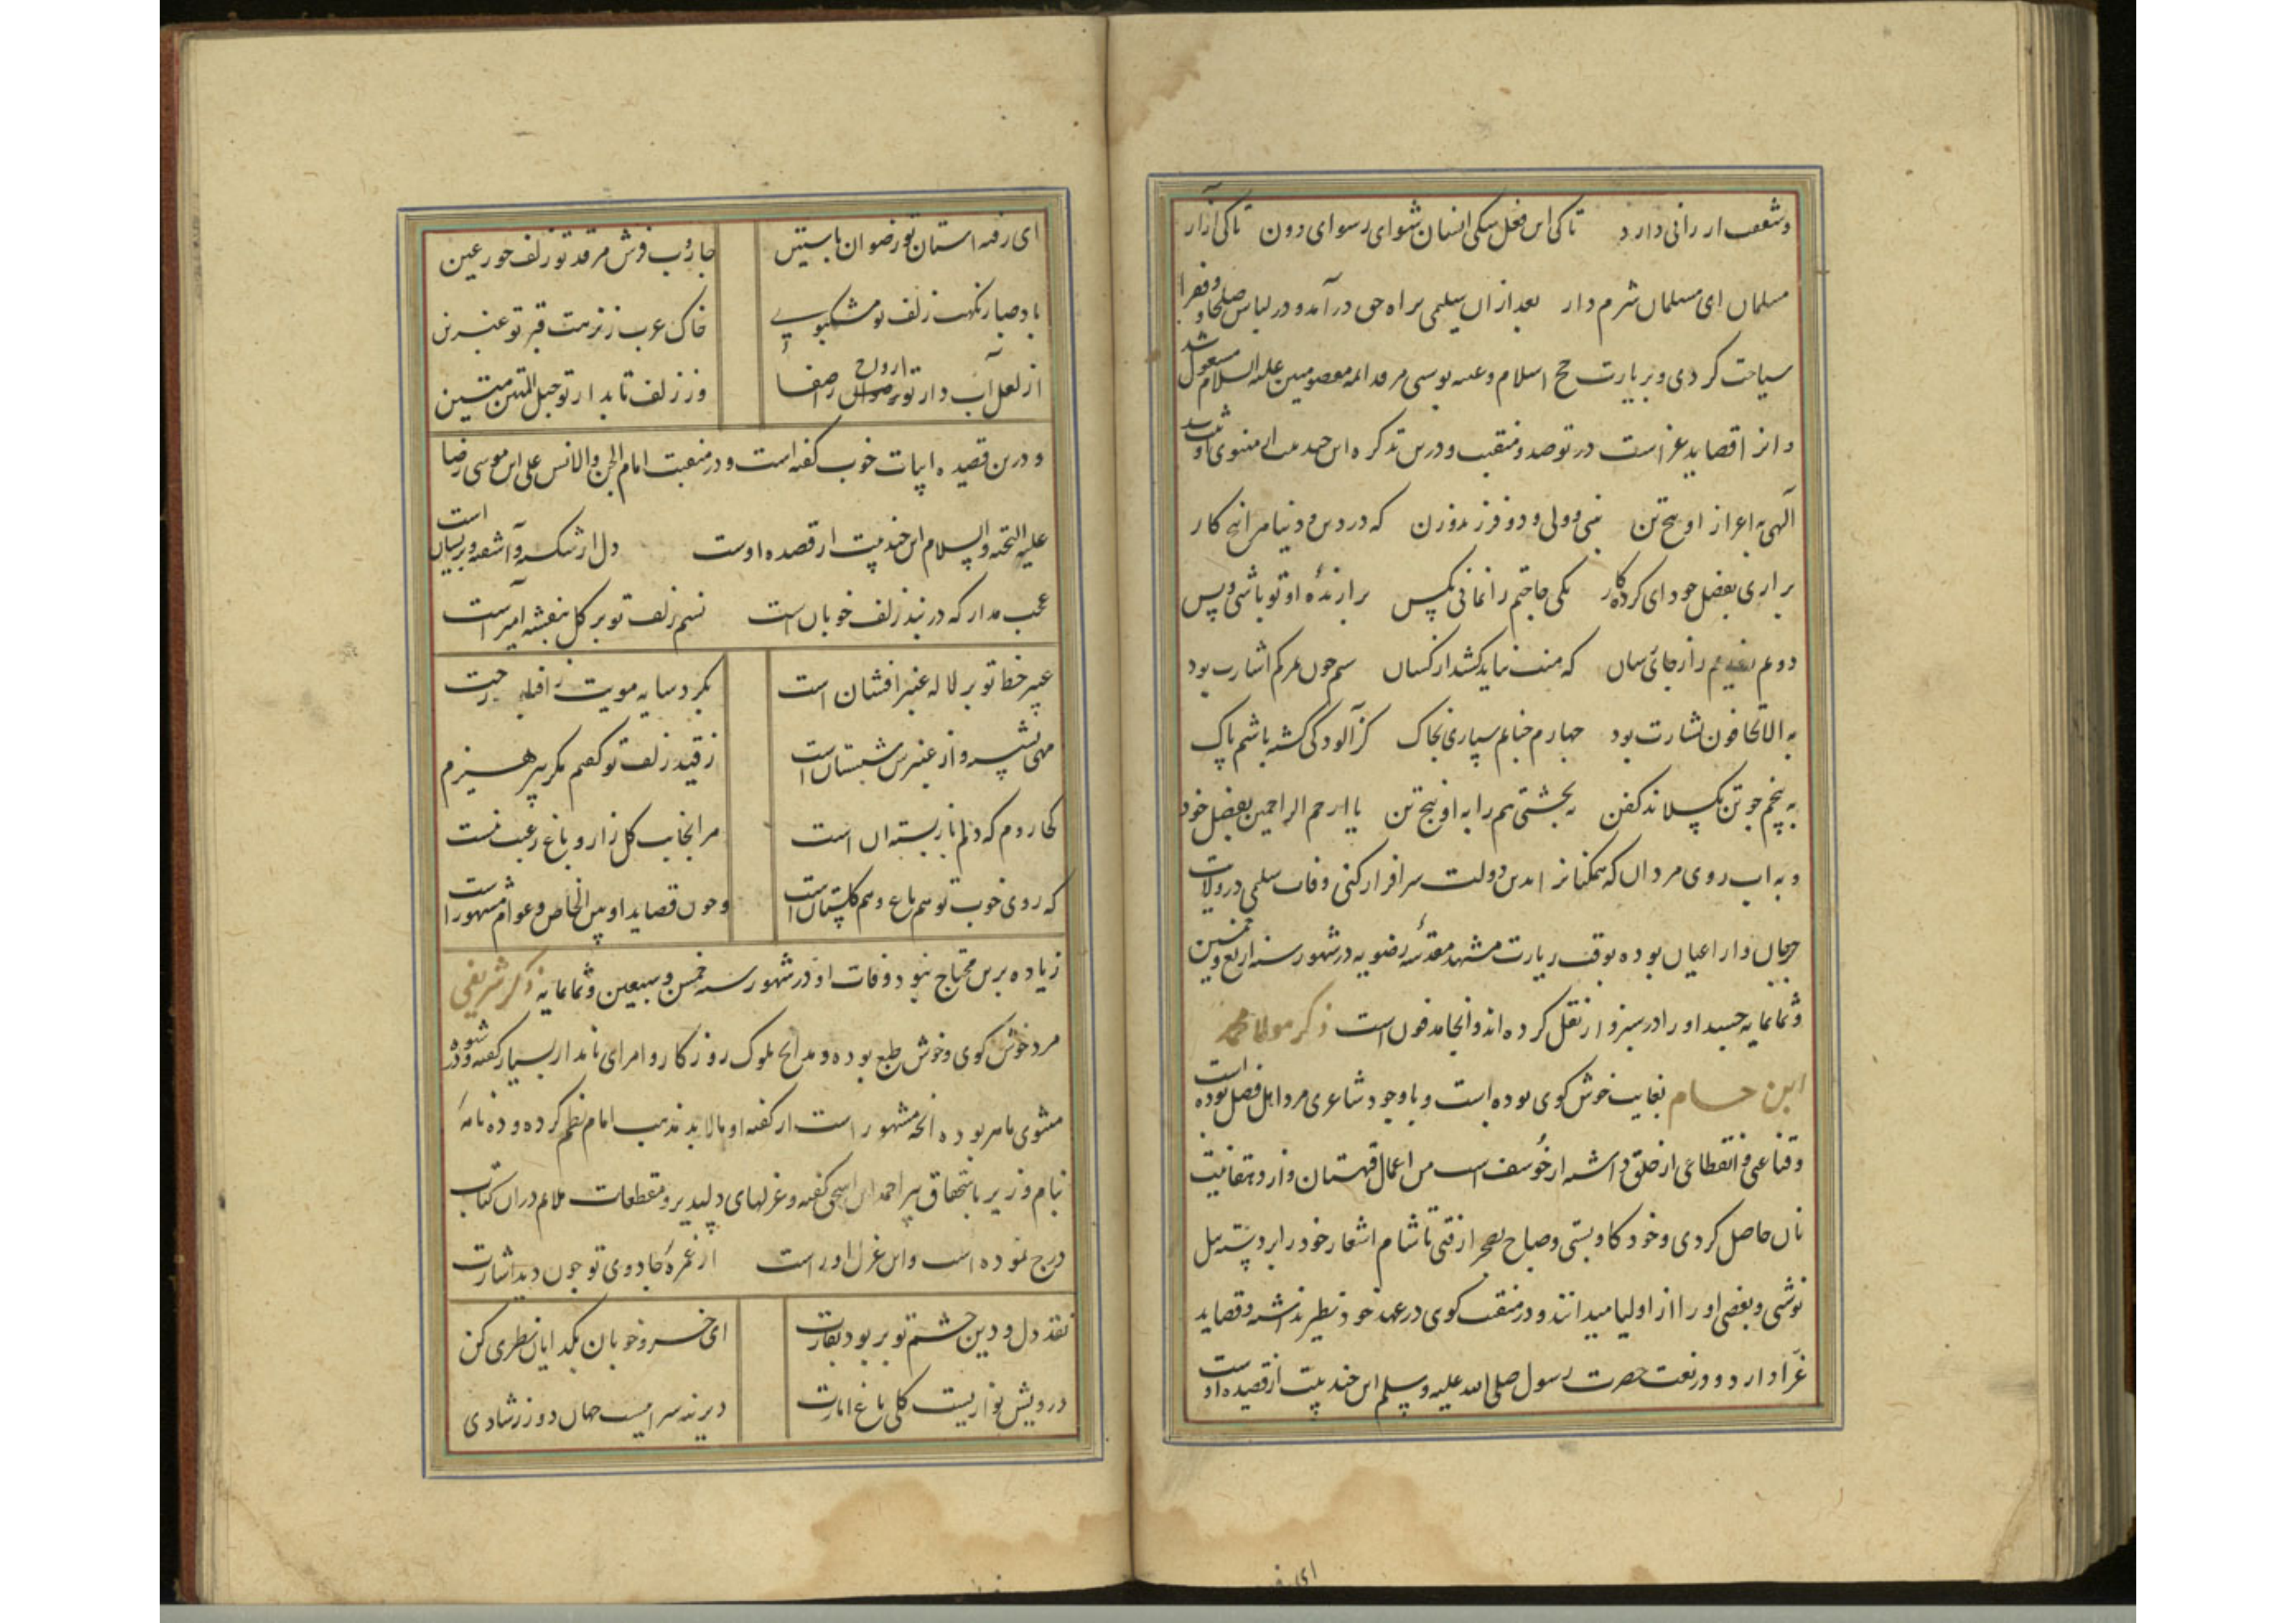 وشغب ارزانی دارد تا کی این فعل سکی انسان شو ای رسوای دون تا کی آزار
مسلمان ای مسلمان شرم دار بعد ازان سلیمی براه حق درآمد و در لباس صلحا و فقرا
سیاحت کردی و بزیارت حج اسلام و عتبه بوسی مرقد ائمه معصومین علیه السلام مشغول شد
و او را قصاید غراست در توحید و منقبت و درین تذکره این چند بیت مثنوی او ثبت شد
الهی به اعزاز او پنج تن نبی و ولی و دو فرزند و زن که در دین و دنیا مرا پنج کار
براری بفضل خود ای کردکار یکی حاجتم را نمانی بکس برازندهٔ او تو باشی و بس
دوم روزیم را ز جائی رسان که منت نباید کشید از کسان سیم چون بمرکم اشارت بود
به الا تخافوا بشارت بود چهارم چنانم سپاری بخاک کز آلودکی کشته باشم پاک
به پنجم چو تن بکسلاند کفن به بخشی تنم را به او پنج تن یا ارحم الراحمین بفضل خود
و به اب روی مردان که همکنانرا بدین دولت سرافراز کنی وفات سلیمی در ولایت
جهان و ار اعیان بوده بوقت زیارت مشهد مقدسهٔ رضویه در شهور سنه اربع و خمسین
و ثمانمایه جسد او را در سبزوار نقل کرده اند و انجا مدفون است ذکر مولانا محمد
ابن حسام بغایت خوش کوی بوده است و با وجود شاعری مرد اهل فضل بوده است
و قناعتی و انقطاعی از خلق داشته از خوسف است من اعمال قهستان و از دهقانیت
نان حاصل کردی و خود کاو بستی و صباح بصحرا رفتی تا شام اشعار خود را بر دسته بیل
نوشتی و بعضی او را از اولیا میدانند و در منقبت کوی در عهد خود نظیر نداشته و قصاید
غرا دارد و در نعت حضرت رسول صلی الله علیه و سلم این چند بیت از قصیده او است
ای رفته استان تو رضوان باستین جاروب فرش مرقد تو زلف حور عین
باد صبا ز نکهت زلف تو مشکبوی خاک عرب ز نزهت قبر تو عنبرین
از لعل آب دار تو ارواح را صفا وز زلف تابدار تو حبل المتین متین
و درین قصیده ابیات خوب کفته است و در منقبت امام الجن والانس علی ابن موسی رضا
علیه التحیه والسلام این چند بیت از قصیده اوست دل ار شکسته و آشفته و پریشان است
عجب مدار که در بند زلف خوبان است نسیم زلف تو بر کل بنفشه آمیز است
عبیر خط تو بر لاله عنبر افشان است بکرد سایه مویت
مهی بشب رو از عنبرین شبستان است ز قید زلف تو کفتم مکر بپرهیزم
کجا روم که دلم نا ز بسته ان است مرا بجانب کل زار و باغ رغبت نیست
که روی خوب تو هم باغ و هم کلستان است و چون قصاید او بین الخاص و عوام مشهور است
زیاده برین محتاج نبود وفات او در شهور سنه خمس و سبعین و ثمانمایه ذکر شریفی
مرد خوش کوی و خوش طبع بوده و مدایح ملوک روزکار و امرای نامدار بسیار کفته و در شیوه
مثنوی ماهر بوده انچه مشهور است از کفته او مالابد مذهب امام نظم کرده و ده نامهٔ
بنام وزیر باستحقاق پیر احمد ابن اسحق کفته و غزلهای دلپذیر و مقطعات ملایم دران کتاب
درج نموده است و این غزل او راست از غمزهٔ جادوی تو چون دید اشارت
نقد دل و دین چشم تو بربود بغارت ای خسرو خوبان بکدایان نظری کن
درویش نوازیست کلی باغ امارت دیرینه سرائیست جهان دو ز شادی